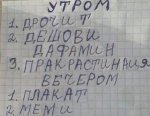 УТРОМ
1. ДРОЧИТ
2. ДЕШОВИ
ДАФАМИН
3. ПРАКРАСТИНАЦИЯ
ВЕЧЕРОМ
1. ПЛАКАТ
2 МЕМЫ